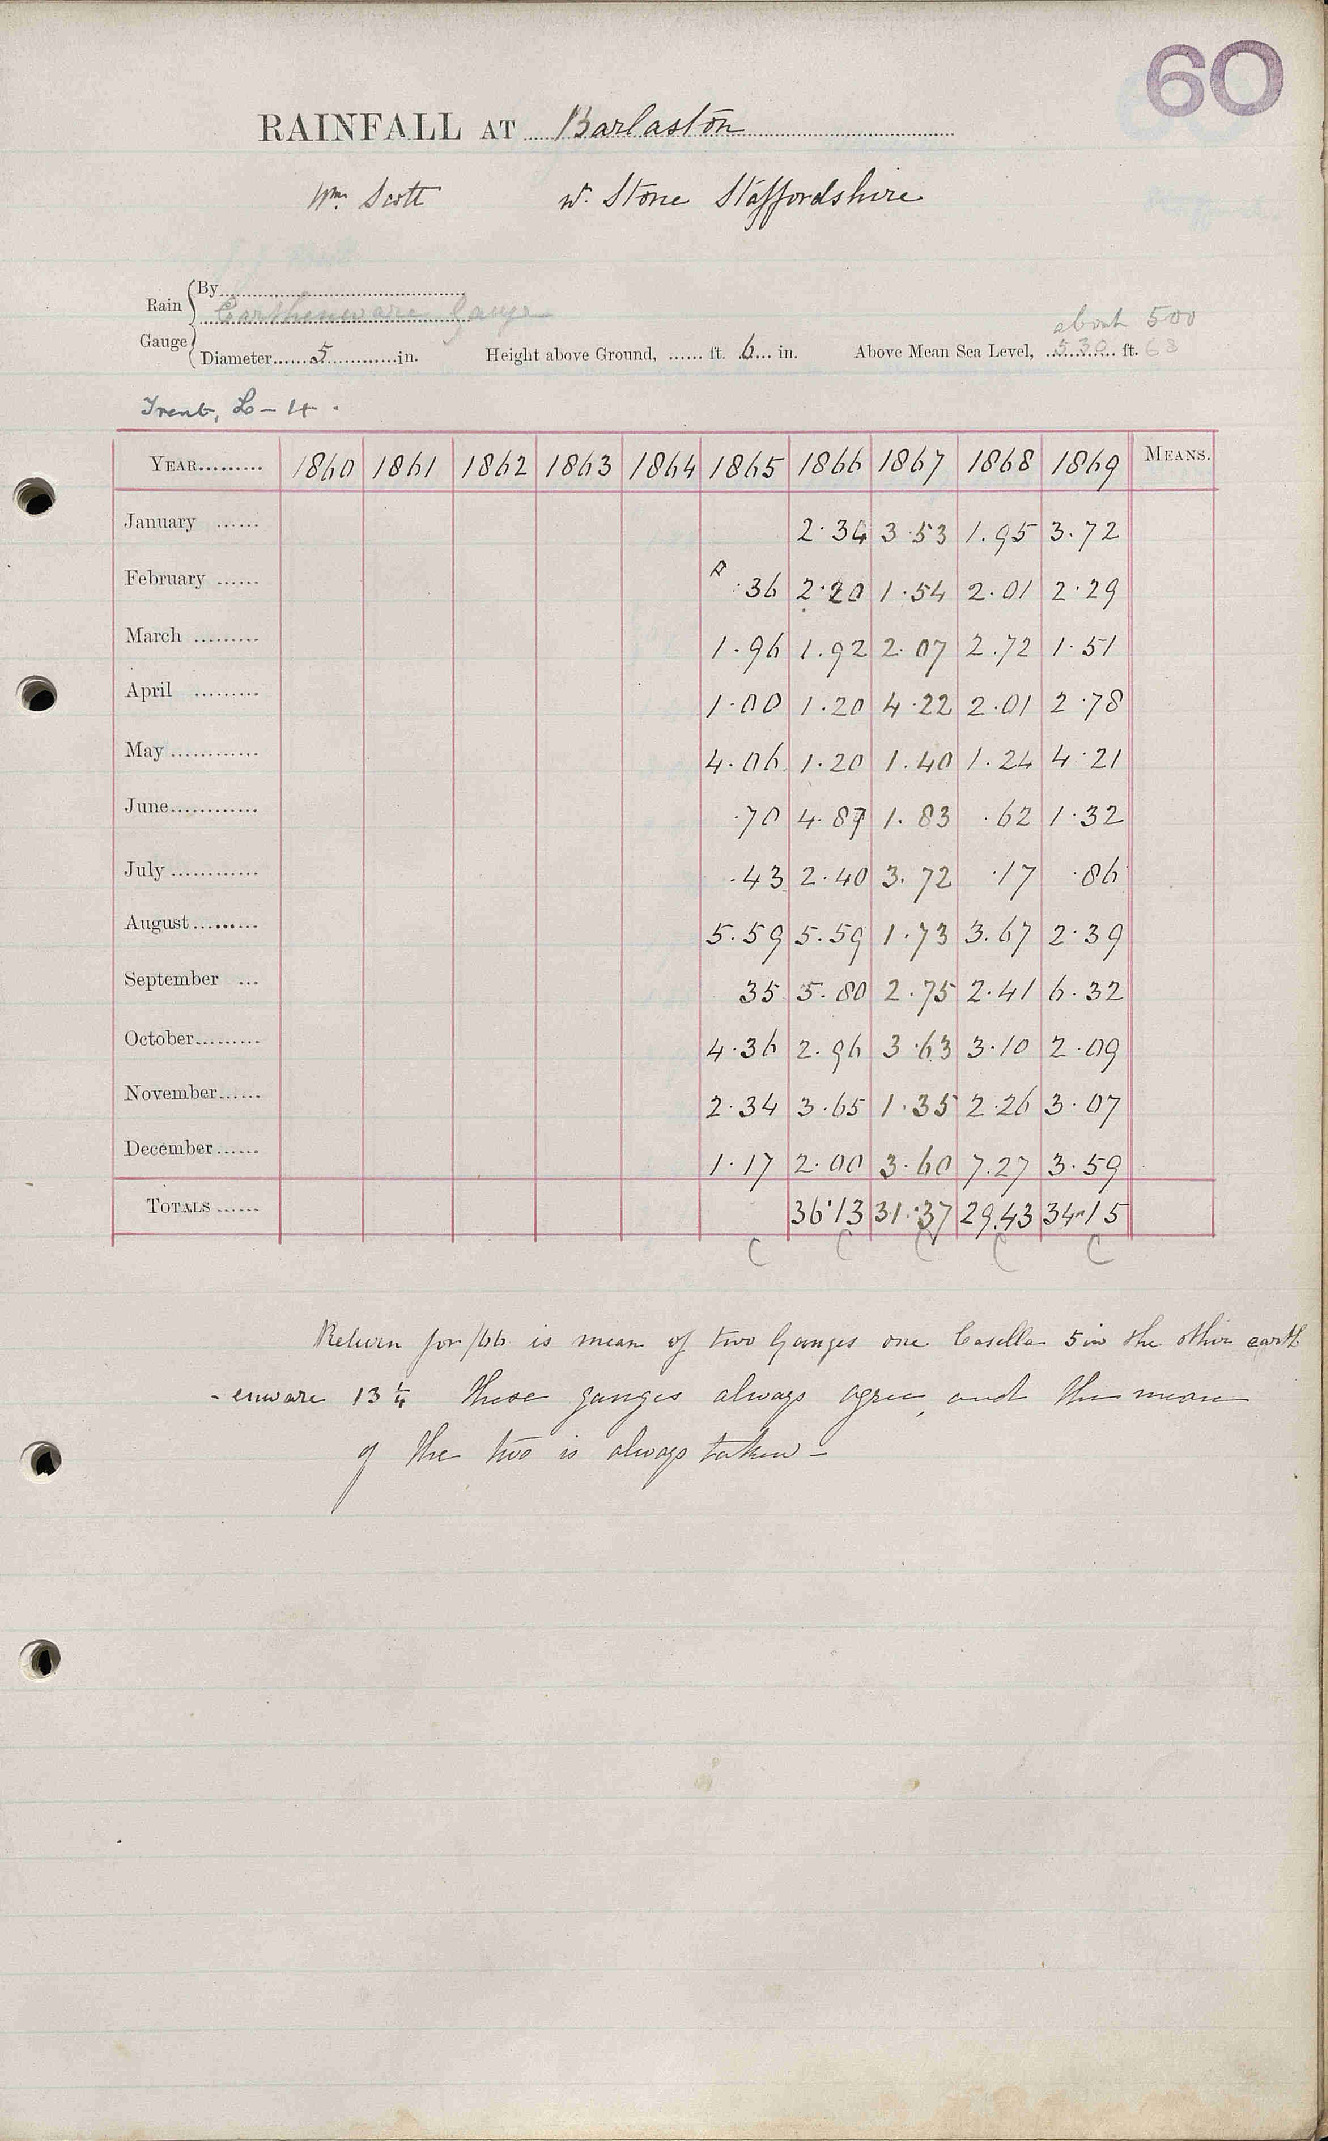 60
RAINFALL AT Barlaston
Wm. Scott nr. Stone Staffordshire
Rain Gauge By
Earthenware Gauge
about 500
Diameter 5 in. Height above Ground, ...... ft. 6 in. Above Mean Sea Level, 530 ft. 63
Trent, L - 14.
YEAR 1860 1861 1862 1863 1864 1865 1866 1867 1868 1869 MEANS.
January 2.34 3.53 1.95 3.72
February .36 2.20 1.54 2.01 2.29
March 1.96 1.92 2.07 2.72 1.51
April 1.00 1.20 4.22 2.01 2.78
May 4.06 1.20 1.40 1.24 4.21
June .70 4.87 1.83 .62 1.32
July .43 2.40 3.72 .17 .86
August 5.59 5.59 1.73 3.67 2.39
September 35 5.80 2.75 2.41 6.32
October 4.36 2.96 3.63 3.10 2.09
November 2.34 3.65 1.35 2.26 3.07
December 1.17 2.00 3.60 7.27 3.59
TOTALS 36.13 31.37 29.43 34.15
C C C C C
Return for /66 is mean of two Gauges one Casella 5 in the other earth
-enware 13 1/4 these gauges always agree, and the mean
of the two is always taken -